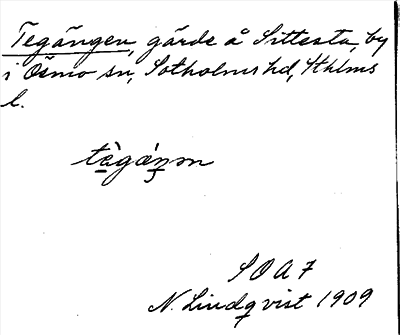 Tegången, gärde å Sittesta, by
i Ösmo sn, Sotholms hd, Sthlms
l.
tègáŋən
SOA 7
N. Lindqvist 1909